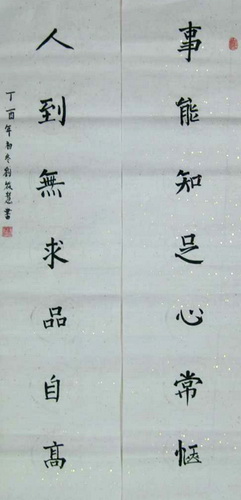 事能知足心常愜
人到無求品自高
丁酉年初冬劉書